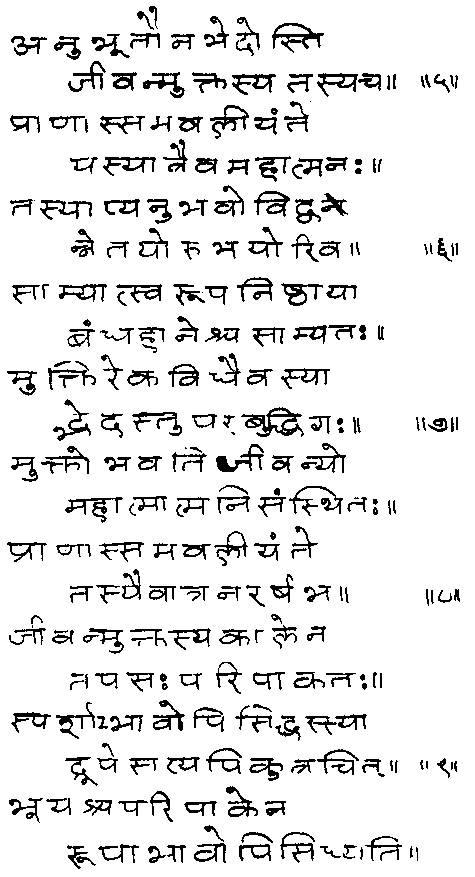 अनुभूतौ न भेदोस्ति
जीवन्मुक्तस्य तस्य च॥ ॥५॥
प्राणास्समवलीयंते
यस्यात्रैव महात्मनः॥
तस्याप्यनुभवो विद्वन्
नेतयोरुभयोरिव॥ ॥६॥
साम्यात्स्वरूपनिष्ठाया
बंधहानेश्च साम्यतः॥
मुक्तिरेकविधैव स्या
द्भेदस्तु परबुद्धिगः॥ ॥७॥
मुक्तो भवति जीवन्यो
महात्मात्मनि संस्थितः॥
प्राणास्समवलीयंते
तस्यैवात्र नरर्षभ॥ ॥८॥
जीवन्मुक्तस्य कालेन
तपसः परिपाकतः॥
स्पर्शाभावोपि सिद्धस्स्या
द्रूपे सत्यपि कुत्रचित्॥ ॥९॥
भूयश्च परिपाकेन
रूपाभावोपि सिध्यति॥